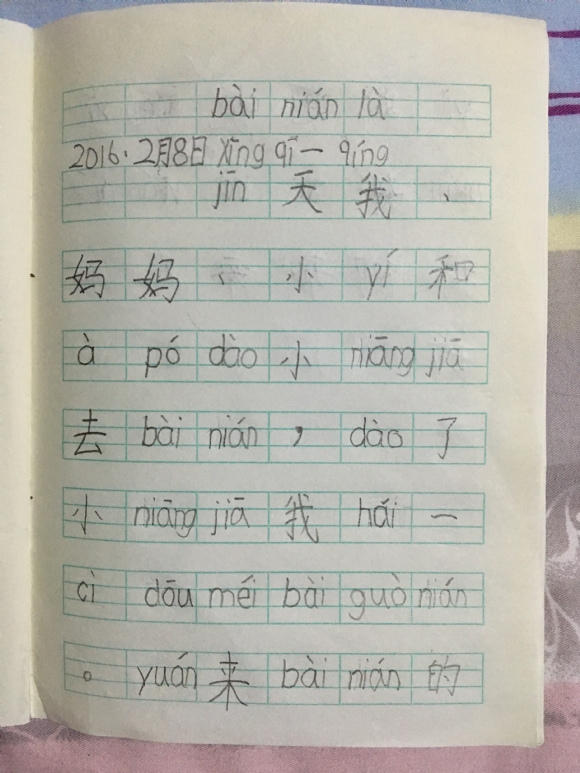 bài nián là
2016.2月8日 xīng qī一 qíng
jīn天我、
妈妈、小yí和
à pó dào小niāng jiā
去bài nián，dào了
小niāng jiā我hái一
cì dōu méi bài guò nián
。yuán来bài nián的